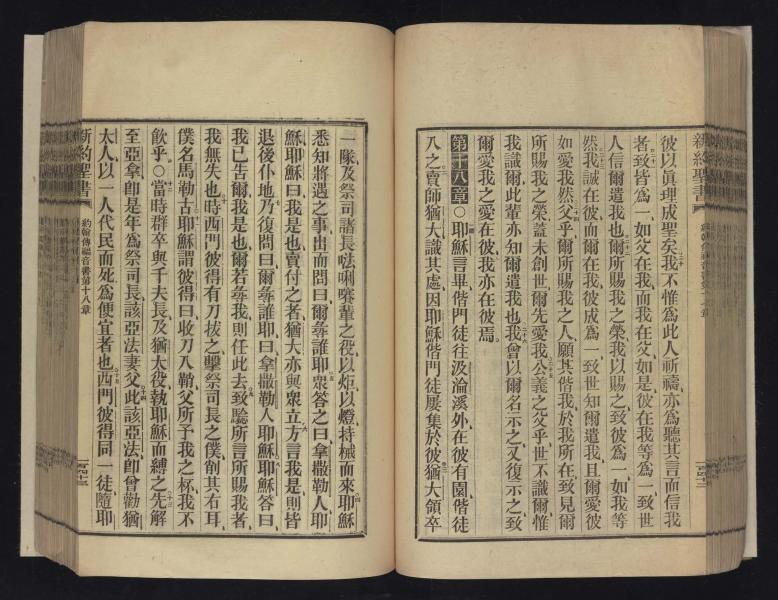 新約聖書
彼以眞理成聖矣我不惟爲此人祈禱亦爲聽其言而信我
者致皆爲一如父在我而我在父如是彼在我等爲一致世
人信爾遣我也爾所賜我之榮我以賜之致彼爲一如我等
然我誠在彼而爾在我彼成爲一致世知爾遣我且爾愛彼
如愛我然父乎爾所賜我之人願其偕我於我所在致見爾
所賜我之榮蓋未創世爾先愛我公義之父乎世不識爾惟
我識爾此輩亦知爾遣我也我曾以爾名示之又復示之致
爾愛我之愛在彼我亦在彼焉
第十八章○耶穌言畢偕門徒往汲淪溪外在彼有園偕徒
入之賣師猶大識其處因耶穌偕門徒屢集於彼猶大領卒
一隊及祭司諸長𠵽唎㘔輩之役以炬以燈持械而來耶穌
悉知將遇之事出而問曰爾尋誰耶衆答之曰拿撒勒人耶
穌耶穌曰我是也賣付之者猶大亦與衆立方言我是則皆
退後仆地乃復問曰爾尋誰耶曰拿撒勒人耶穌耶穌答曰
我已告爾我是也爾若尋我則任此去致驗所言所賜我者
我無失也時西門彼得有刀拔之擊祭司長之僕削其右耳
僕名馬勒古耶穌謂彼得曰收刀入鞘父所予我之杯我不
飲乎○當時羣卒與千夫長及猶太役執耶穌而縛之先解
至亞拿卽是年爲祭司長該亞法妻父此該亞法卽曾勸猶
太人以一人代民而死爲便宜者也西門彼得同一徒隨耶
新約聖書
約翰傳福音書第十八章